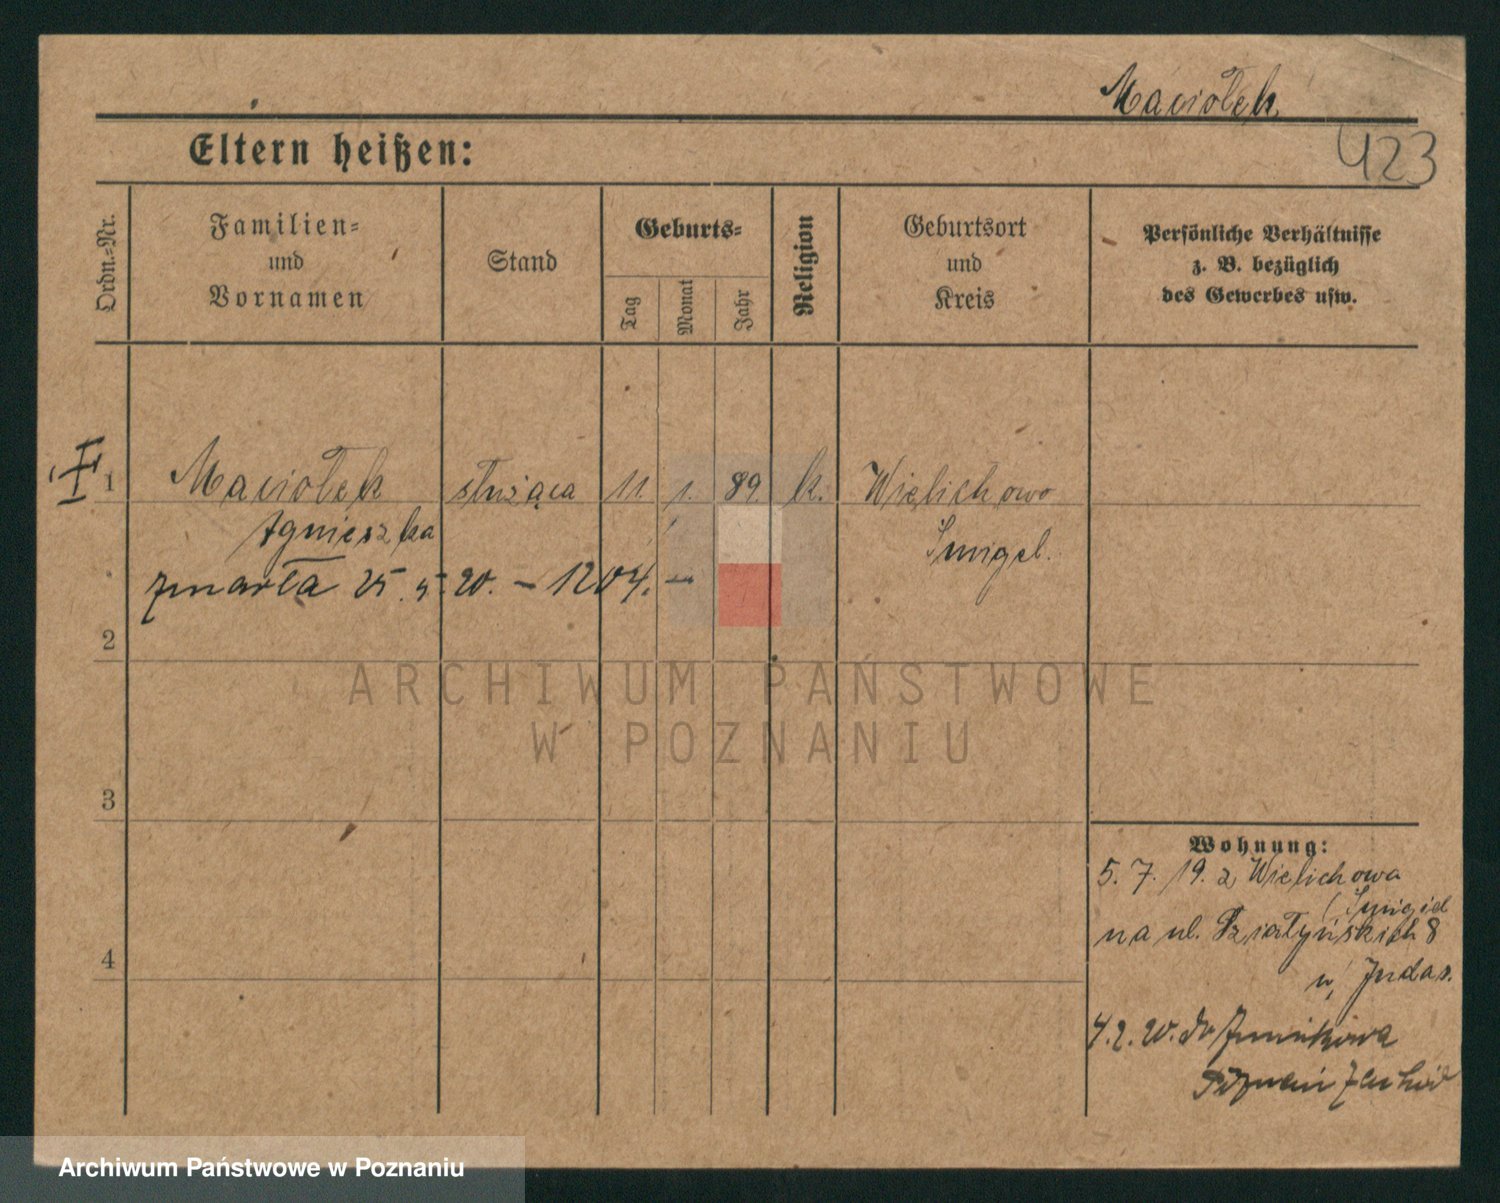 Maciołek
423
Eltern heißen:
Ordn.-Nr.
Familien-
und
Vornamen
Stand
Geburts-
Tag
Monat
Jahr
Religion
Geburtsort
und
Kreis
Persönliche Verhältnisse
z. B. bezüglich
des Gewerbes usw.
1 Maciołek służąca 11. 1. 89. k. Wielichowo
Agnieszka Śmigel.
zmarła 25. 5. 20. – 1204. –
2
ARCHIWUM PAŃSTWOWE
W POZNANIU
3
Wohnung:
5. 7. 19. z Wielichowa
(Śmigiel
na ul. Działyńskich 8
u, Judas.
4
4. 2. 20. do Junikowa
Poznań Zachód
Archiwum Państwowe w Poznaniu